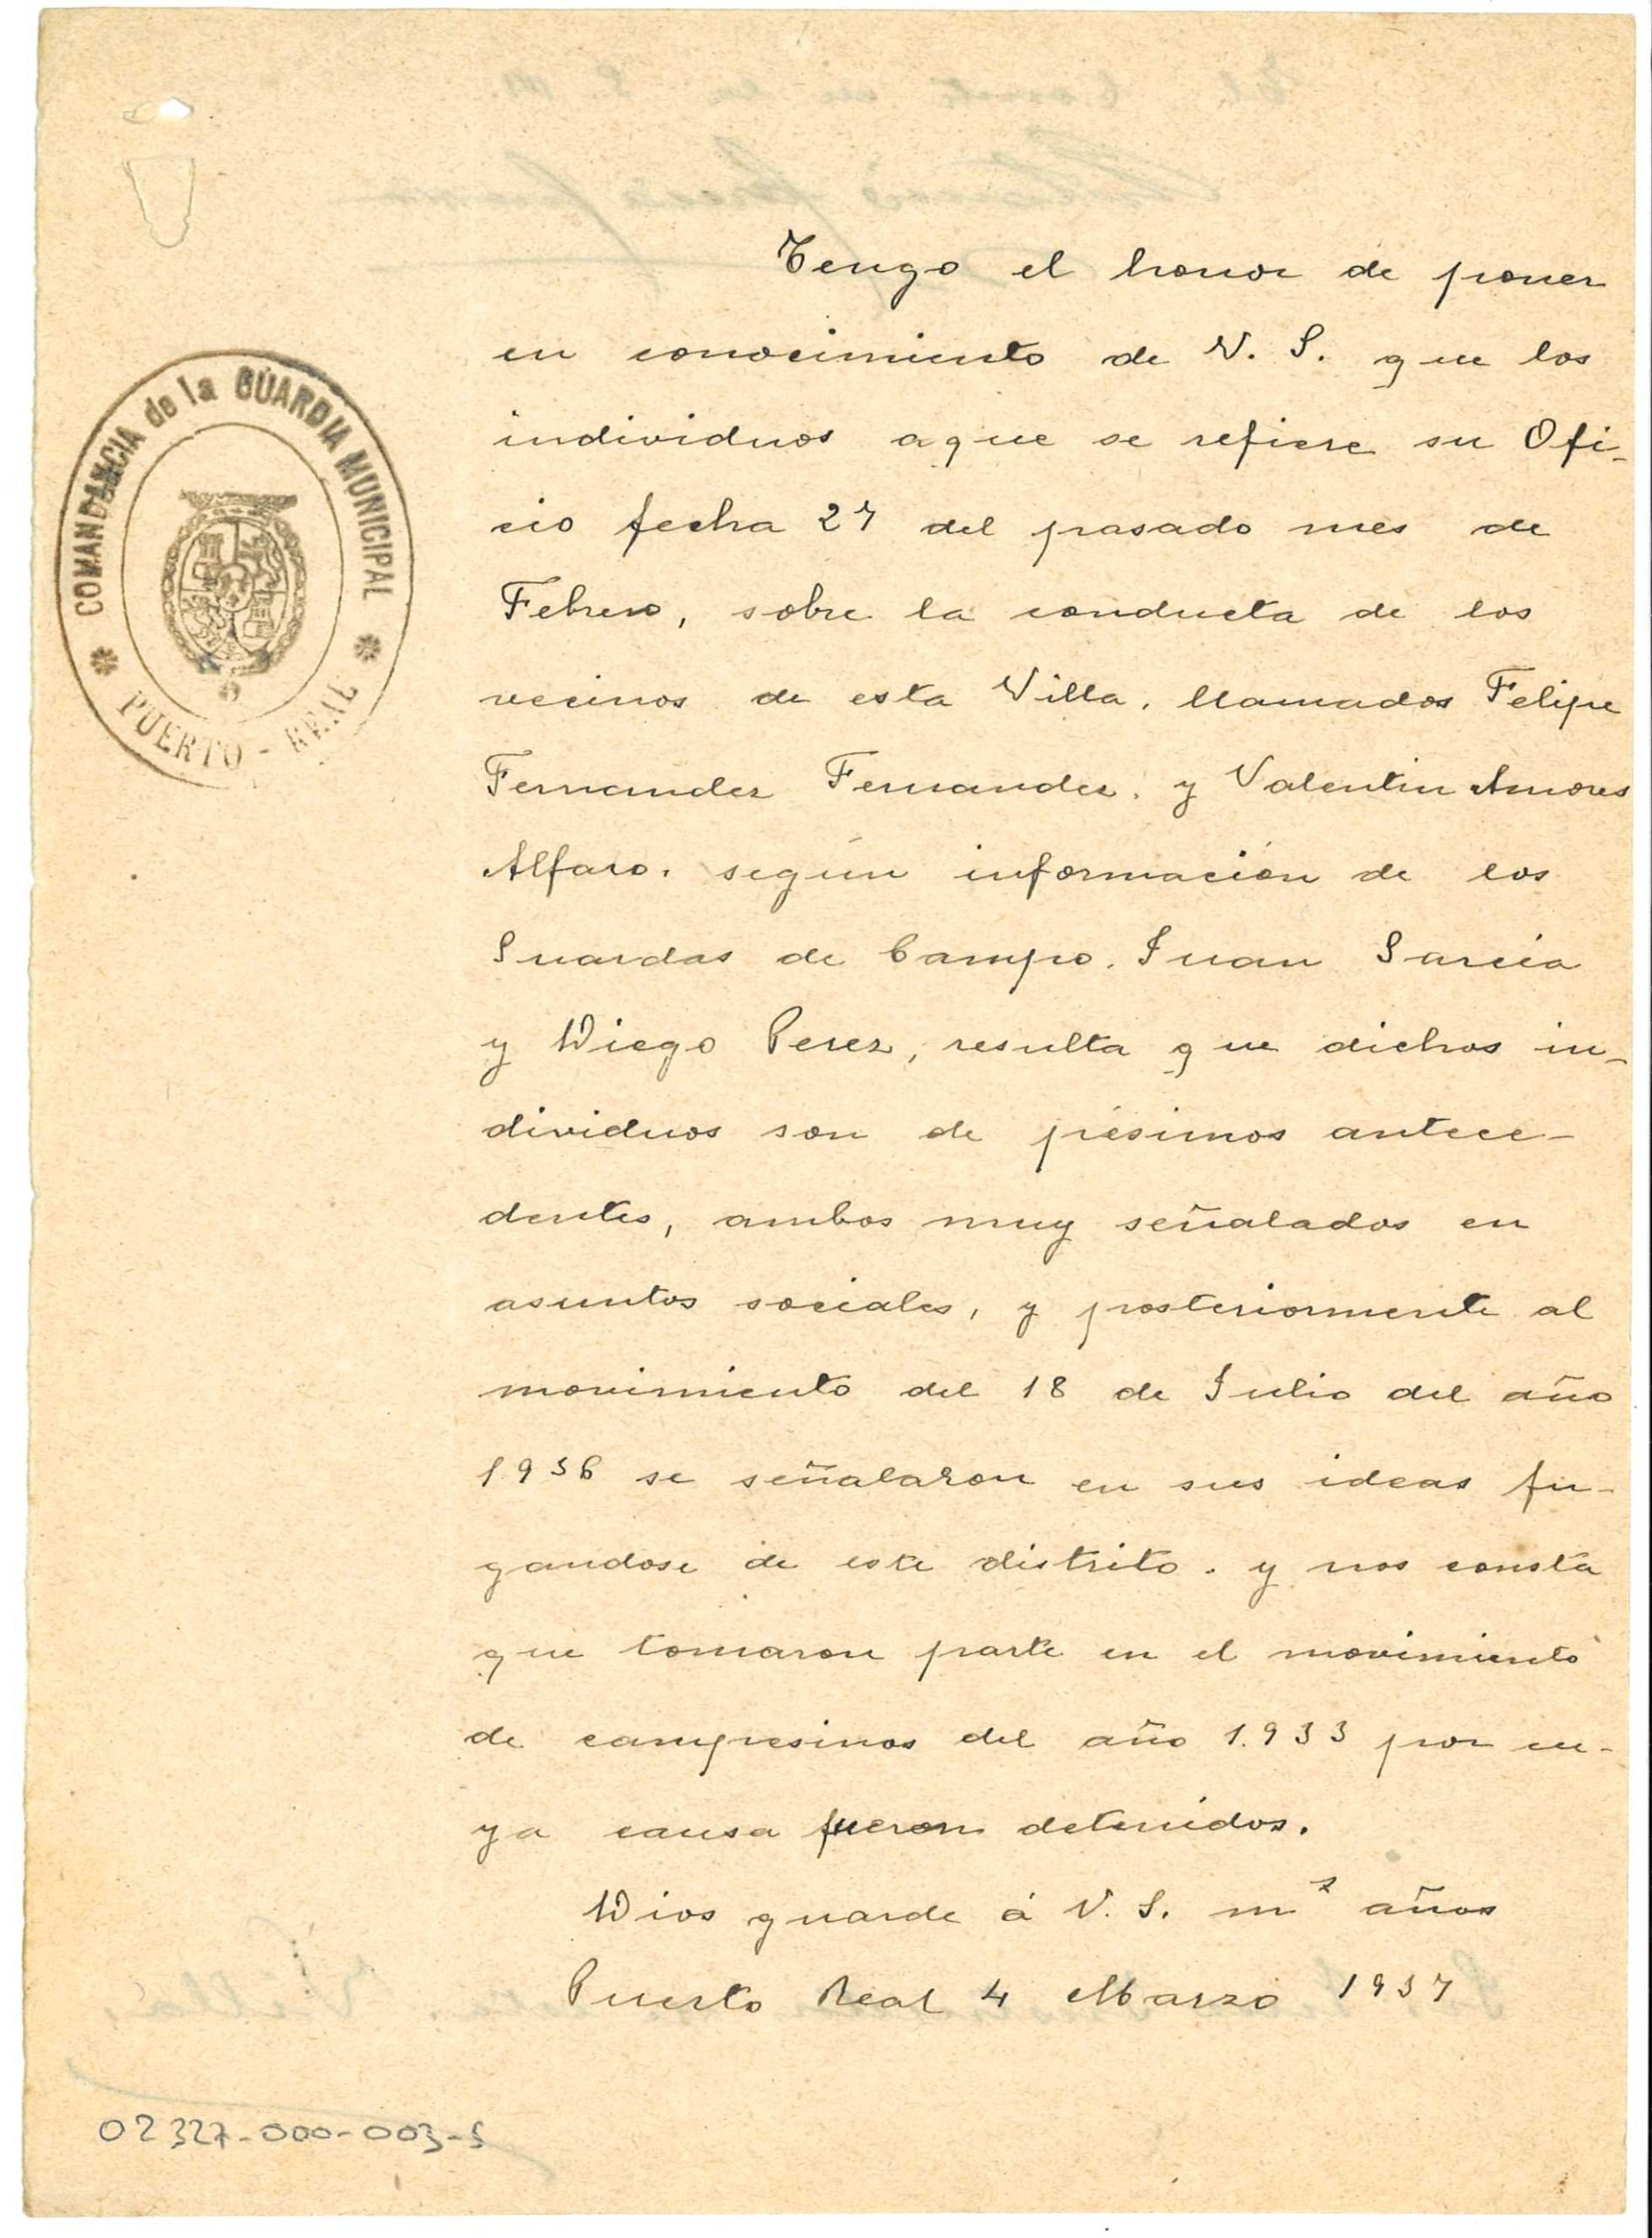 Tengo el honor de poner
en conocimiento de V. S. que los
individuos aque se refiere su Ofi-
cio fecha 27 del pasado mes de
Febrero, sobre la conducta de los
vecinos de esta Villa, llamados Felipe
Fernandez Fernandez, y Valentin Amores
Alfaro, según información de los
Guardas de Campo, Juan García
y Diego Perez, resulta que dichos in-
dividuos son de pésimos antece-
dentes, ambos muy señalados en
asuntos sociales, y posteriormente al
movimiento del 18 de Julio del año
1936 se señalaron en sus ideas fu-
gandose de este distrito. y nos consta
que tomaron parte en el movimiento
de campesinos del año 1.933 por cu-
ya causa fueron detenidos.
Dios guarde á V. S. mˢ años
Puerto Real 4 Marzo 1937
COMANDANCIA de la GUARDIA MUNICIPAL
* PUERTO-REAL *
02327-000-003-5